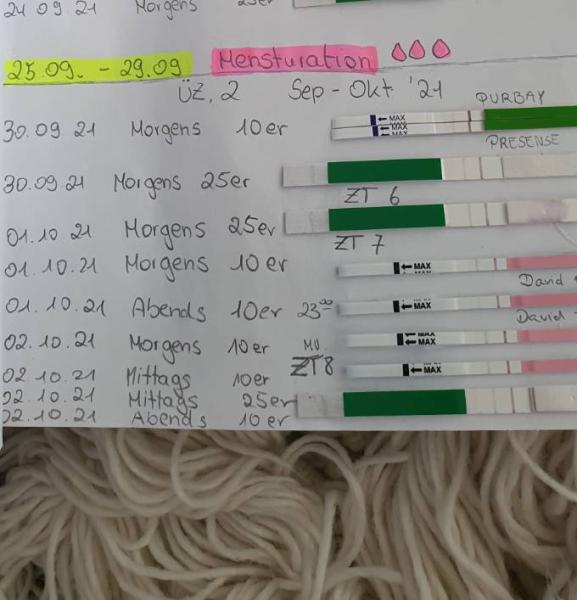 24 09 21 Morgens 25er
25.09. - 29.09 Mensturation
ÜZ. 2 Sep - Okt '21
PURBAY
30.09 21 Morgens 10er
MAX
MAX
PRESENSE
30.09 21 Morgens 25er
ZT 6
01.10 21 Morgens 25er
ZT 7
01.10.21 Morgens 10er
MAX
David
01.10.21 Abends 10er 23⁰⁰
MAX
David
02.10.21 Morgens 10er MU
MAX
ZT8
02.10.21 Mittags 10er
MAX
02.10.21 Mittags 25er
02.10.21 Abends 10er